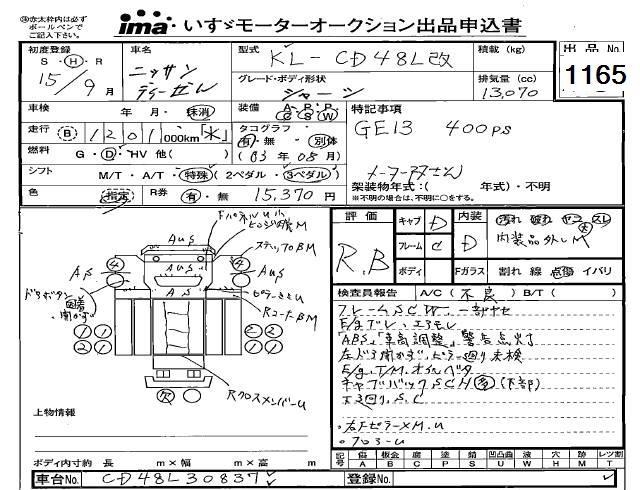 ㊟赤太枠内は必ず
ボールペンで
ご記入下さい。
ima いすゞモーターオークション出品申込書
初度登録 S・H・R 15/9月
車名 ニッサン ディーゼル
型式 KL-CD48L改
積載 (kg)
出品No. 1165
グレード・ボディ形状 シャーシ
排気量 (cc) 13,070
車検 年・月・抹消
装備 A・P・P C S W
特記事項
走行 B 1201,000km 水
タコグラフ 有・無 別体
GE13 400PS
燃料 G・D・HV 他( )
(03年05月)
シフト M/T・A/T・特殊(2ペダル・3ペダル)
架装物年式:( 年式)・不明
※不明の場合は、不明に○をする。
色 指定 R券 有・無 15,370 円
評価 R.B
キャブ D 内装 D
フレーム C
ボディ Fガラス 割れ 線 点傷 イバリ
汚れ 破れ ヤニ スレ
内装品外しM
検査員報告 A/C(不良) B/T( )
フレームSCW.一部ヤセ
E/gブレ.エアモレ
「ABS」「車高調整」警告点灯
左ドア開かず.ピラー廻り未検
E/g.T/M.オイルベタ
キャブバックSCH多(下部)
下廻り.S.C
・右FピラーXM.U
・フロアーU
FパネルU小
ステップBM
RコーナーBM
RクロスメンバーU
ドアボタン
固着
開かず
AUS
AUS
AS
AS
AUS
④ ④
① ① ② ②
② ② ② ②
欠
上物情報
ボディ内寸約 長 m×幅 m×高 m
記号 傷A 板金B 腐C 塗P 錆S 凹凸曲U 波W 穴H 跡M レンズ割T
車台No. CD48L30837
登録No.